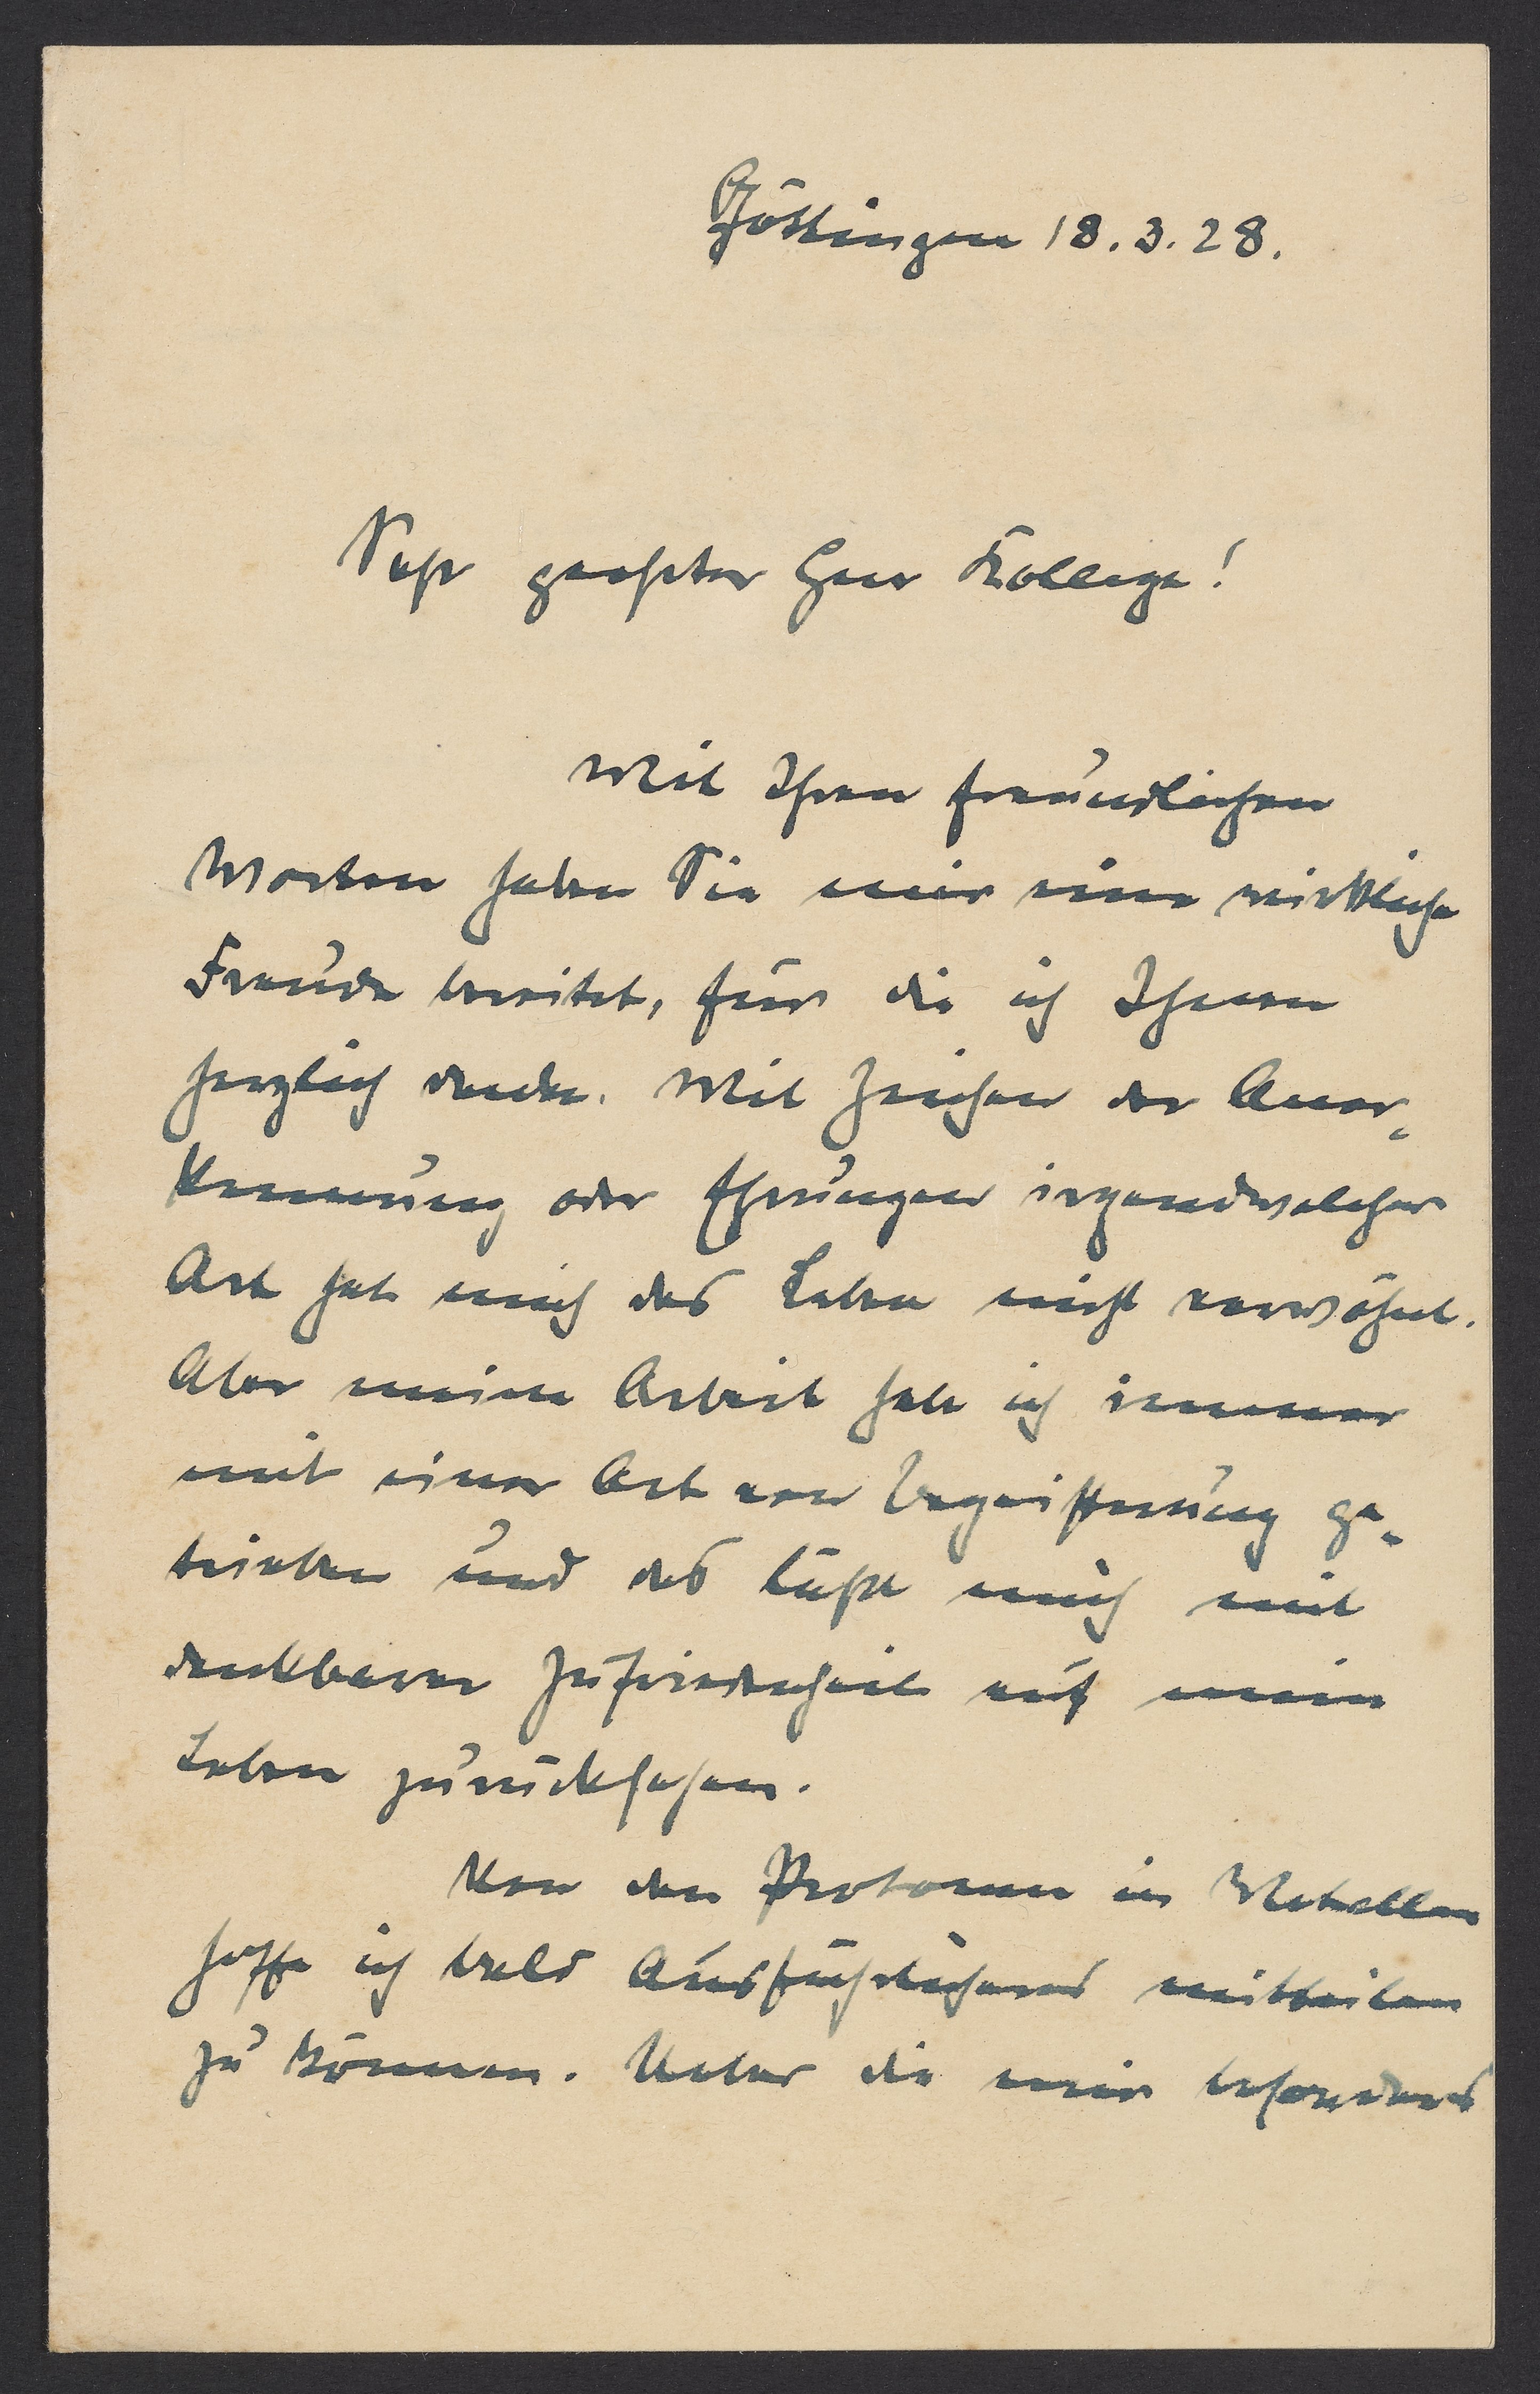 Göttingen 18.3.28.
Sehr geehrter Herr Kollege!
Mit Ihren freundlichen
Worten haben Sie mir eine wirkliche
Freude bereitet, für die ich Ihnen
herzlich danke. Mit Zeichen der Aner-
kennung oder Ehrungen irgendwelcher
Art hat mich das Leben nicht verwöhnt.
Aber meine Arbeit habe ich immer
mit einer Art von Begeisterung ge-
trieben und das läßt mich mit
dankbarer Zufriedenheit auf mein
Leben zurücksehen.
Von den Protonen in Metallen
hoffe ich bald Ausführlicheres mitteilen
zu können. Ueber die mir besonders